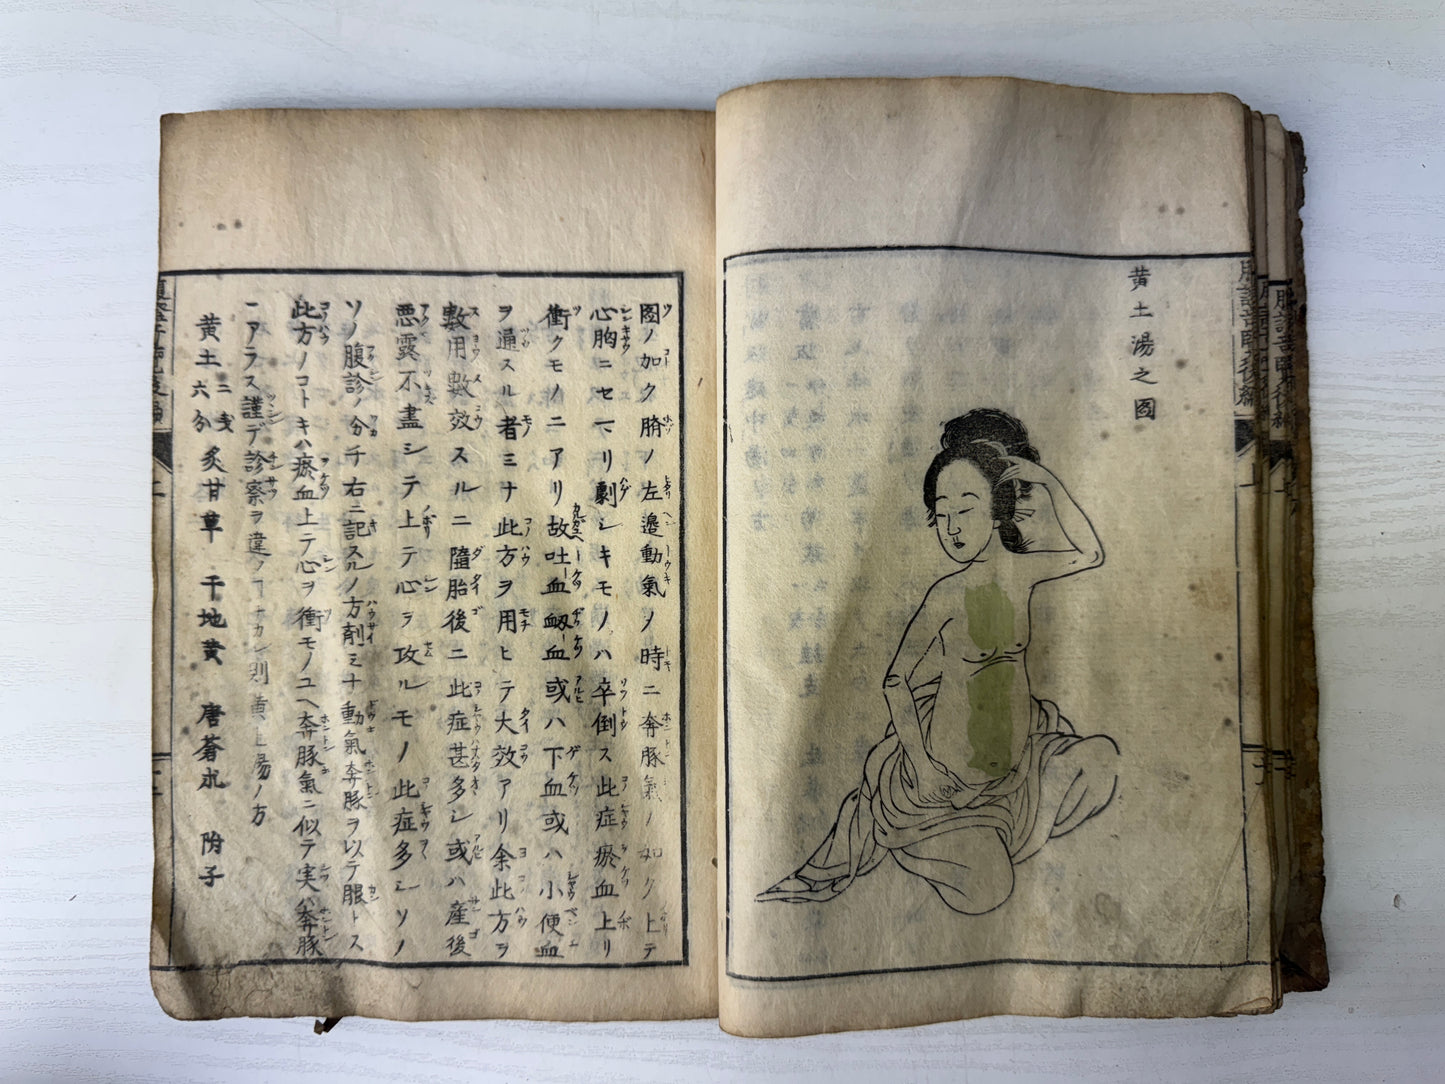 黄土湯之圖
圖ノ加ク臍ノ左邉動氣ノ時ニ奔豚氣ノ如ク上テ
心胸ニセマリ劇シキモノハ卒倒ス此症瘀血上リ
衝クモノニアリ故吐血衂血或ハ下血或ハ小便血
ヲ通スル者ミナ此方ヲ用ヒテ大效アリ余此方ヲ
數用數效スルニ隨胎後ニ此症甚多シ或ハ産後
悪露不盡シテ上テ心ヲ攻ルモノ此症多シソノ
ソノ腹診ノ分チ右ニ記スルノ方剤ミナ動氣奔豚ヲ以テ眼トス
此方ノコトキハ瘀血上テ心ヲ衝モノユヘ奔豚氣ニ似テ実ハ奔豚
ニアラス謹デ診察ヲ違ノ別黄土湯ノ方
黄土六分二戔 炙甘草 干地黄 唐蒼朮 附子